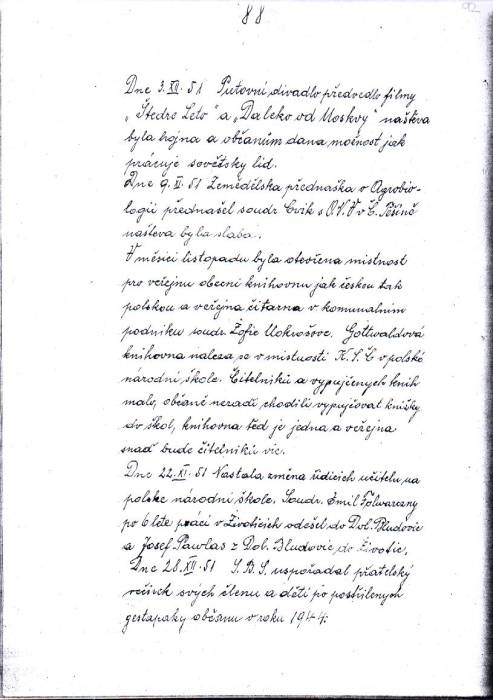 88
92
Dne 3. XII. 51 Putovní divadlo předvedlo filmy
„Štedre Leto" a „Daleko od Moskvy" naštěva
byla hojna a občanům dana možnost jak
prácuje sovětsky lid.
Dne 9. XI. 51 Zemědělska přednaška o Agrobio-
logii přednašel soudr Cvik s O.N.V v Č. Těšíně
našteva byla slaba.
V měsíci listopadu byla otevřena mistnost
pro veřejnu obecni knihovnu jak českou tak
polskou a veřejna čitarna v komunalnim
podniku soudr. Žofie Mokrošove. Gottwaldová
knihovna naleza se v mistnosti K.S.Č v polské
národní škole. Čitelniků a vypujčenych knih
malo, občané neradi chodili vypujčovat knížky
do škol, knihovna ted je jedna a veřejna
snad bude čitelniků vic.
Dne 22. XI. 51 Nastala změna řidicich učitelu na
polske národní škole. Soudr. Emil Folwarczny
po 6 lete práci v Životicich odešel do Dol. Bludovic
a Josef Pawlas z Dol. Bludovic do Životic,
Dne 28. XII. 51 S.B.S. uspořadal přatelský
večirek svých členu a děti po postřilenych
gestapaky občanu v roku 1944.